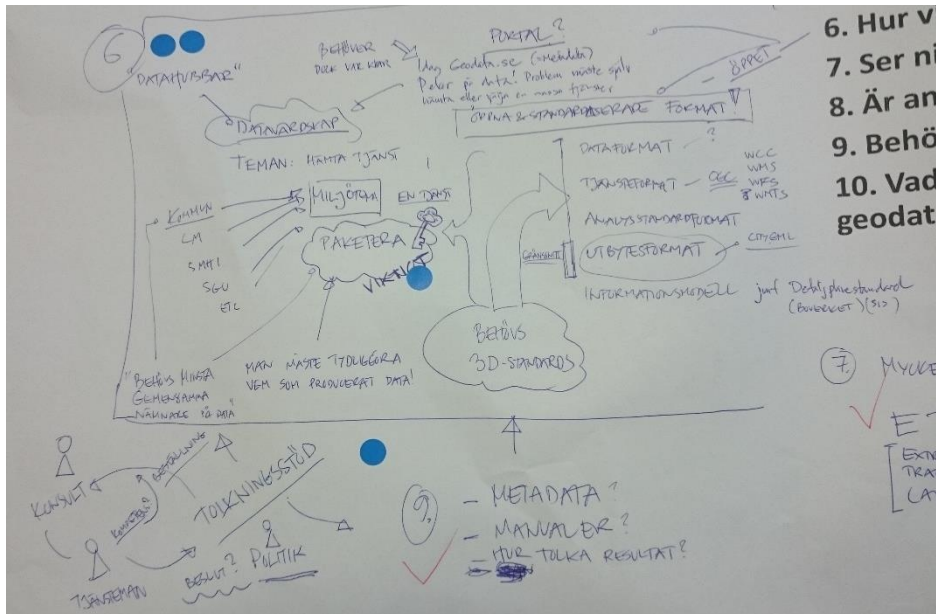 6
"DATAHUBBAR"
BEHÖVER
DOCK VAR KLAR
PORTAL?
Idag Geodata.se (=metadata)
Pekar på data! Problem måste själv
hämta eller följa en massa tjänster
- ÖPPET
ÖPPNA & STANDARDISERADE FORMAT!
DATAVÄRDSKAP
TEMAN: HÄMTA TJÄNST
!
DATAFORMAT - ?
KOMMUN
LM
SMHI
SGU
ETC
MILJÖTEMA
EN TJÄNST
PAKETERA
VIKTIGT
TJÄNSTEFORMAT - OGC
WCC
WMS
WFS
WMTS
ANALYSSTANDARDFORMAT
GRÄNSSNITT
UTBYTESFORMAT - CITYGML
INFORMATIONSMODELL jmf Detaljplanestandard
(BOVERKET) (SIS)
BEHÖVS
3D-STANDARDS
"BEHÖVS MINSTA
GEMENSAMMA
NÄMNARE PÅ DATA"
MAN MÅSTE TYDLIGGÖRA
VEM SOM PRODUCERAT DATA!
KONSULT
BESTÄLLNING
KOMPETENS?
TJÄNSTEMAN
TOLKNINGSSTÖD
BESLUT? POLITIK
9.
- METADATA?
- MANUALER?
- HUR TOLKA RESULTAT?
6. Hur v
7. Ser ni
8. Är an
9. Behö
10. Vad
geodat
7. MYCKE
E T
EXTR
TRA